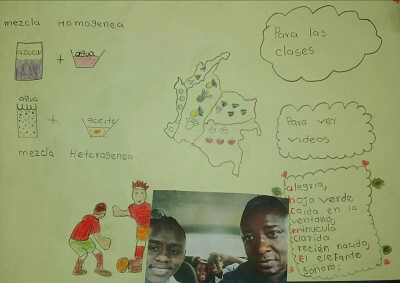 mezcla Homogenea
azucar + agua
agua
+ aceite
mezcla Heterogenea
Para las
clases
Para ver
videos
alegria,
hoja verde
caida en la
ventana,
minucula
clarida
recien nacido,
El elefante
sonoro.